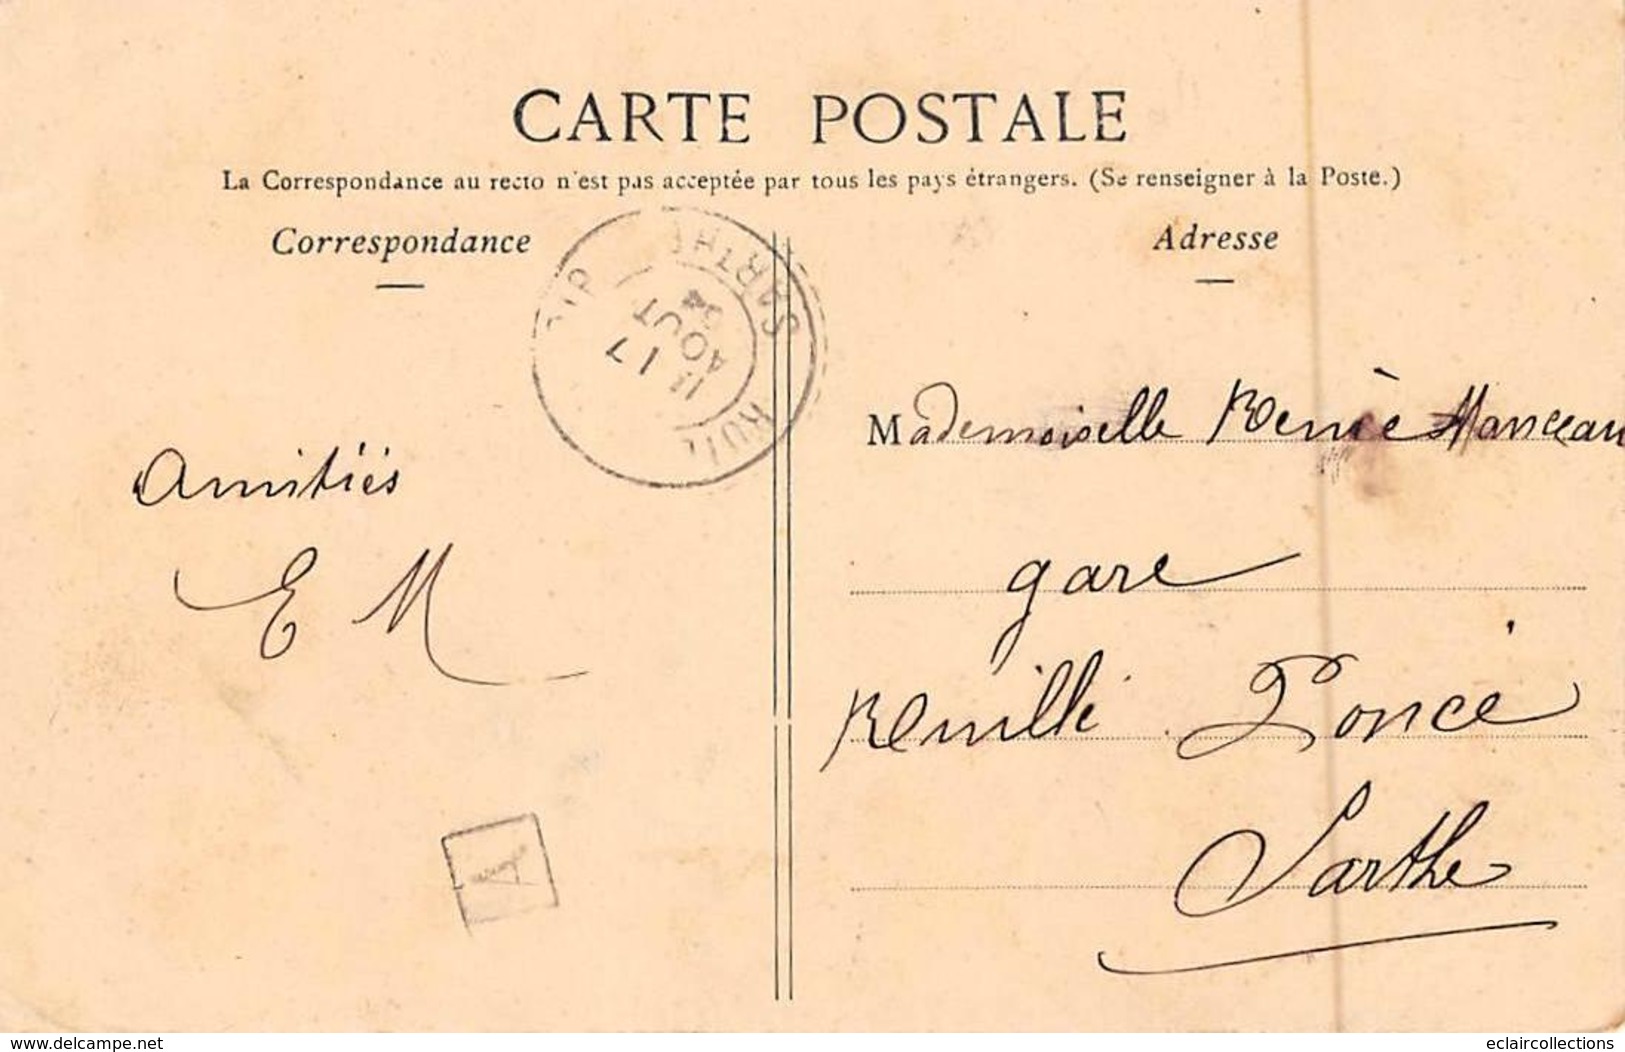 CARTE POSTALE
La Correspondance au recto n'est pas acceptée par tous les pays étrangers. (Se renseigner à la Poste.)
Correspondance
Adresse
SARTHE
17
AOUT
Mademoiselle Renée Manceau
Amitiés
gare
E M
Poncé
Sarthe
www.delcampe.net
eclaircollections